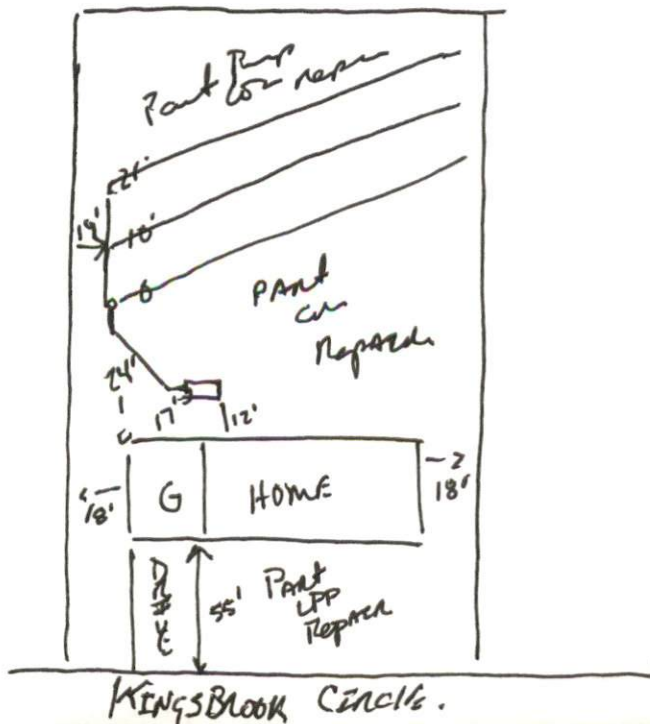 Part Pump
Con Repair
21'
19'
10'
0
Part
Con
Repair
24'
17'
12'
18'
G
HOME
18'
DRIVE
55'
Part
LPP
Repair
KINGSBROOK CIRCLE.